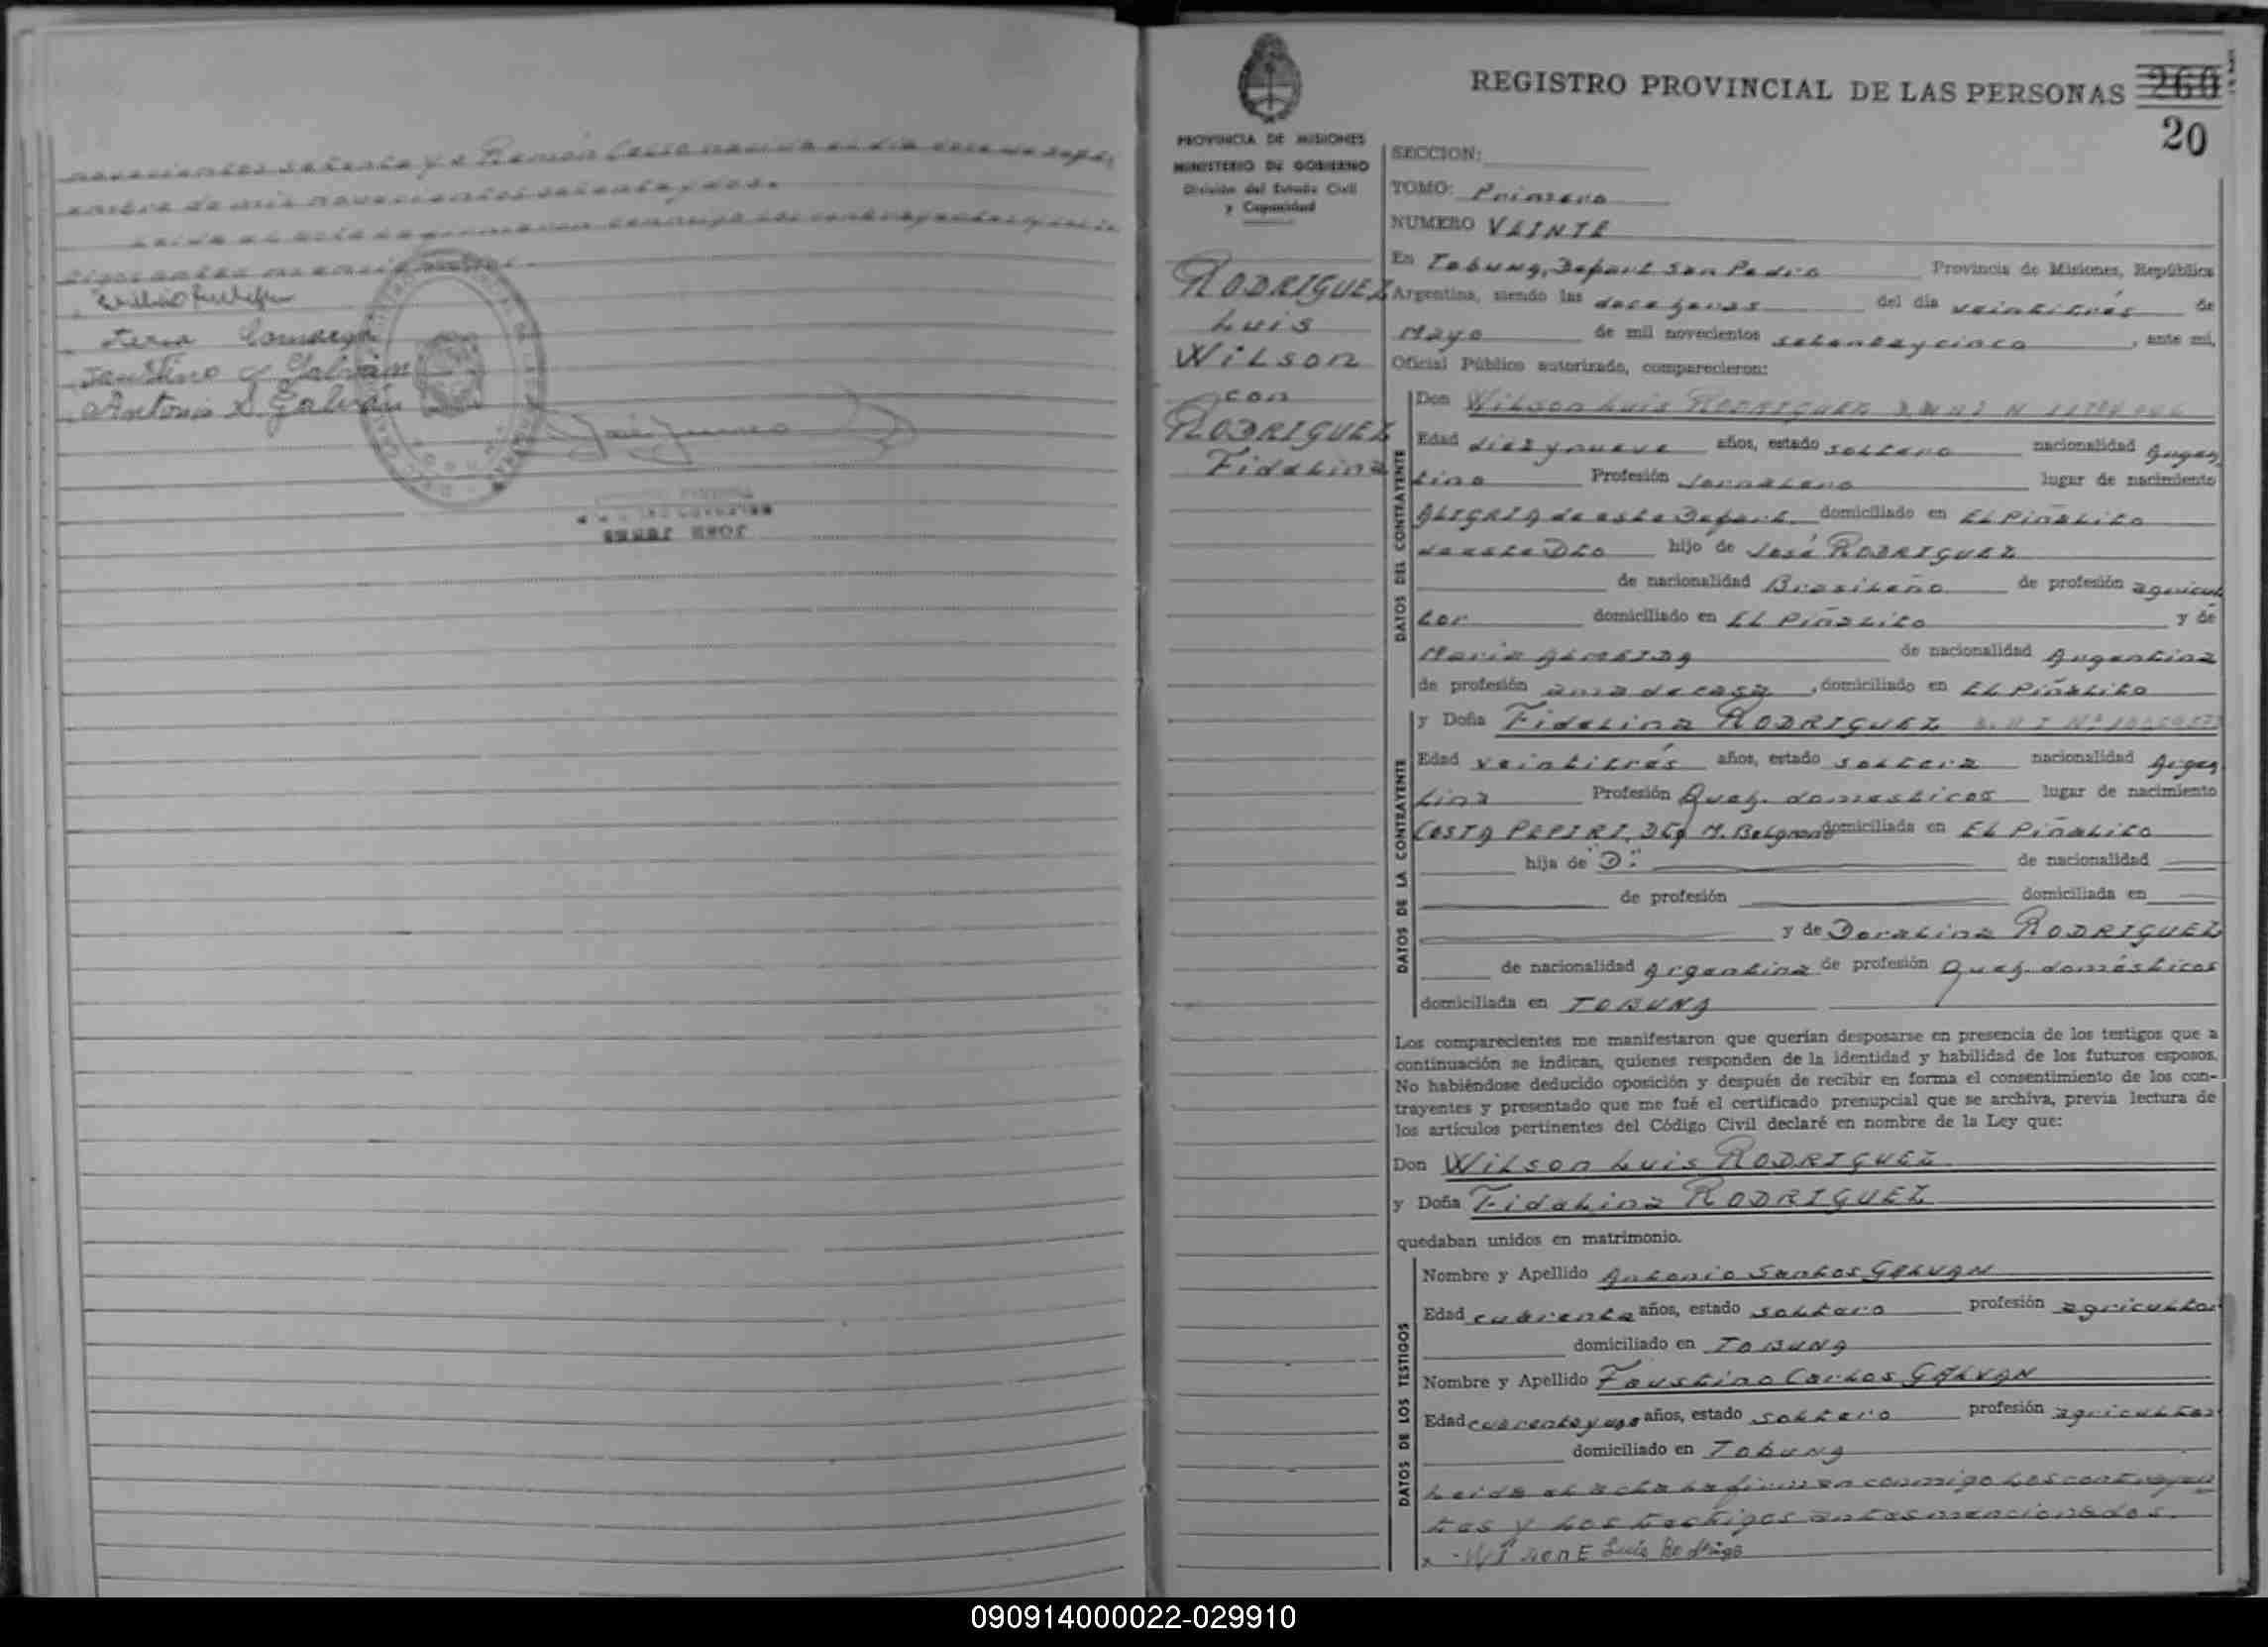 novecientos setenta y a Ramón Celso nacido el día doce de septi-
embre de mil novecientos setenta y dos.
Leida el acta la firmaron conmigo los contrayentes y los tes-
tigos antes mencionados.
Comargo
Faustino C Galván
Antonio S. Galván
PROVINCIA DE MISIONES
MINISTERIO DE GOBIERNO
División del Estado Civil
y Capacidad
RODRIGUEZ
Luis
Wilson
con
RODRIGUEZ
Fidelina
REGISTRO PROVINCIAL DE LAS PERSONAS 260
20
SECCION:
TOMO: Primero
NUMERO VEINTE
En Tobuna, Depart. San Pedro Provincia de Misiones, República
Argentina, siendo las doce horas del día veintitrés de
Mayo de mil novecientos setenta y cinco, ante mí,
Oficial Público autorizado, comparecieron:
DATOS DEL CONTRAYENTE
Don Wilson Luis RODRIGUEZ D.N.I N
Edad diez y nueve años, estado soltero nacionalidad Argen
tino Profesión Jornalero lugar de nacimiento
ALEGRIA de este Depart. domiciliado en El Piñalito
de este Dto hijo de José RODRIGUEZ
de nacionalidad Brasileño de profesión agricul
tor domiciliado en El Piñalito y de
María ALMEIDA de nacionalidad Argentina
de profesión ama de casa, domiciliado en El Piñalito
DATOS DE LA CONTRAYENTE
y Doña Fidelina RODRIGUEZ D.N.I Nº
Edad veintitrés años, estado soltera nacionalidad Argen
tina Profesión Queh. domesticos lugar de nacimiento
COSTA PEPIRI, Dto M. Belgrano domiciliada en El Piñalito
hija de D. de nacionalidad
de profesión domiciliada en
y de Doralina RODRIGUEZ
de nacionalidad Argentina de profesión Queh. domésticos
domiciliada en TOBUNA
Los comparecientes me manifestaron que querían desposarse en presencia de los testigos que a
continuación se indican, quienes responden de la identidad y habilidad de los futuros esposos.
No habiéndose deducido oposición y después de recibir en forma el consentimiento de los con-
trayentes y presentado que me fué el certificado prenupcial que se archiva, previa lectura de
los artículos pertinentes del Código Civil declaré en nombre de la Ley que:
Don Wilson Luis RODRIGUEZ
y Doña Fidelina RODRIGUEZ
quedaban unidos en matrimonio.
DATOS DE LOS TESTIGOS
Nombre y Apellido Antonio Santos GALVAN
Edad cuarenta años, estado soltero profesión agricultor
domiciliado en TOBUNA
Nombre y Apellido Faustino Carlos GALVAN
Edad cuarenta y uno años, estado soltero profesión agricultor
domiciliado en Tobuna
Leida el acta la firman conmigo los contrayen
tes y los testigos antes mencionados.
x Luis
090914000022-029910